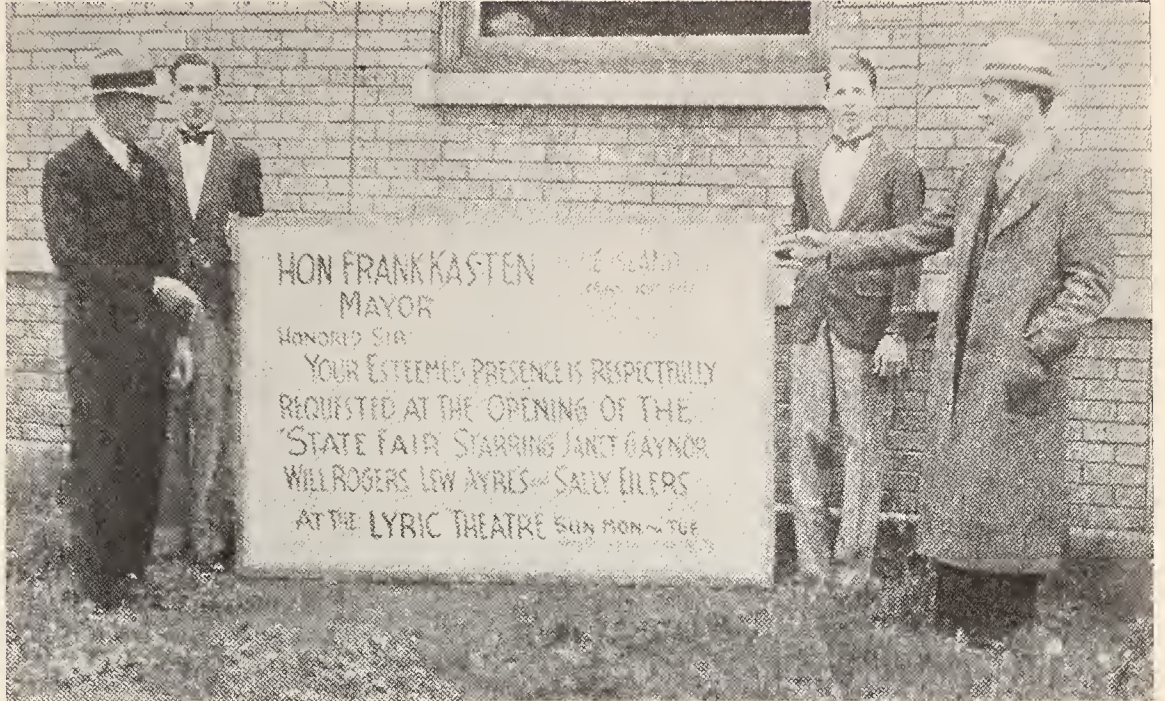 HON FRANK KASTEN
MAYOR
HONORED SIR
YOUR ESTEEMED PRESENCE IS RESPECTFULLY
REQUESTED AT THE OPENING OF THE
"STATE FAIR" STARRING JANET GAYNOR
WILL ROGERS LEW AYRES AND SALLY EILERS
AT THE LYRIC THEATRE SUN MON ~ TUE